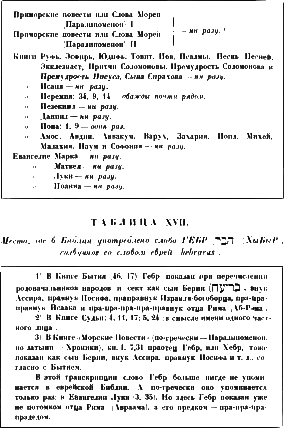 Приморские повести или Слова Морей
(Паралипоменон) I
— ни разу.
Приморские повести или Слова Морей
(Паралипоменон) II
Книги Руфь, Эсфирь, Юдифь, Товит, Иов, Псалмы, Песнь Песней,
Экклезиаст, Притчи Соломоновы, Премудрость Соломонова и
Премудрость Иисуса, Сына Сирахова — ни разу.
" Исаия — ни разу.
" Иеремия: 34, 9, 14 — дважды почти рядом.
" Иезекиил — ни разу.
" Даниил — ни разу.
" Иона: 1, 9 — один раз.
" Амос, Авдий, Аввакум, Варух, Захария, Иоил, Михей,
Малахия, Наум и Софония — ни разу.
Евангелие Марка — ни разу.
" Матвея — ни разу.
" Луки — ни разу.
" Иоанна — ни разу.
ТАБЛИЦА XVII.
Места, где в Библии употреблено слово ГЕБР חבר (ХБР),
созвучное со словом еврей — hebraeus.
1) В Книге Бытия (46, 17) Гебр показан при перечислении
родоначальников народов и сект как сын Берии, внук
Ассира, правнук Иосифа, праправнук Израиля-богоборца, пра-пра-
правнук Исаака и пра-пра-пра-правнук отца Рима, Аб-Рама.
2) В Книге Судьи: 4, 11, 17; 5, 24 в смысле имени одного част-
ного лица.
3) В Книге «Морские Повести» (по-гречески — Паралипоменон,
по латыни — Хроники), кн. I, 7, 31 праотец Гебр, или Хебр, тоже
показан как сын Берии, внук Ассира, правнук Иосифа и т. д. со-
гласно с Бытием.
В этой транскрипции слово Гебр больше нигде не упоми-
нается в еврейской Библии. А по-гречески оно упоминается
только раз в Евангелии Луки (3, 35). Но здесь Гебр показан уже
не потомком отца Рима (Авраама), а его предком — пра-пра-пра-
прадедом.